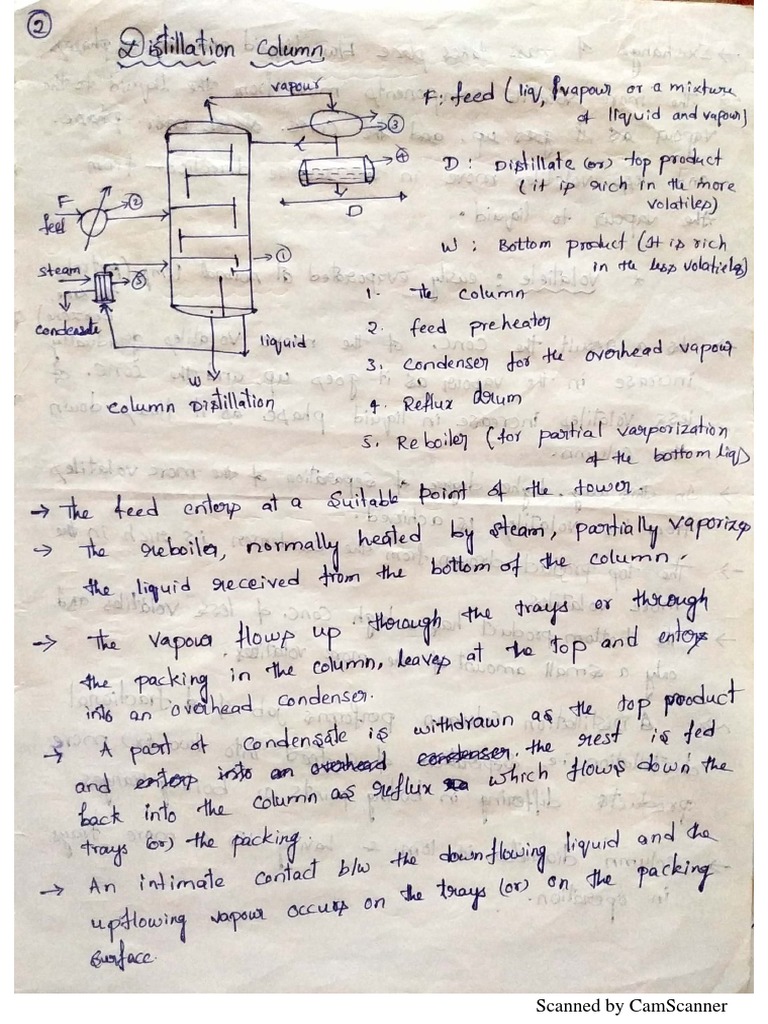 2
Distillation Column
vapour
3
4
D
F
feed
2
steam
5
1
condensate
liquid
W
Column Distillation
F: feed (liq, vapour or a mixture
of liquid and vapour)
D: Distillate (or) top product
(it is rich in the more
volatiles)
W: Bottom product (It is rich
in the less volatiles)
1. The column
2. feed preheater
3. condenser for the overhead vapour
4. Reflux drum
5. Reboiler (for partial varporization
of the bottom liq)
→ The feed enters at a suitable point of the tower.
→ The reboiler, normally heated by steam, partially vaporizes
the liquid received from the bottom of the column.
→ The vapour flows up through the trays or through
the packing in the column, leaves at the top and enters
into an overhead condenser.
→ A part of condensate is withdrawn as the top product
and enters into an overhead condenser. the rest is fed
back into the column as reflux which flows down the
trays (or) the packing.
→ An intimate contact b/w the downflowing liquid and the
upflowing vapour occurs on the trays (or) on the packing
surface.
Scanned by CamScanner